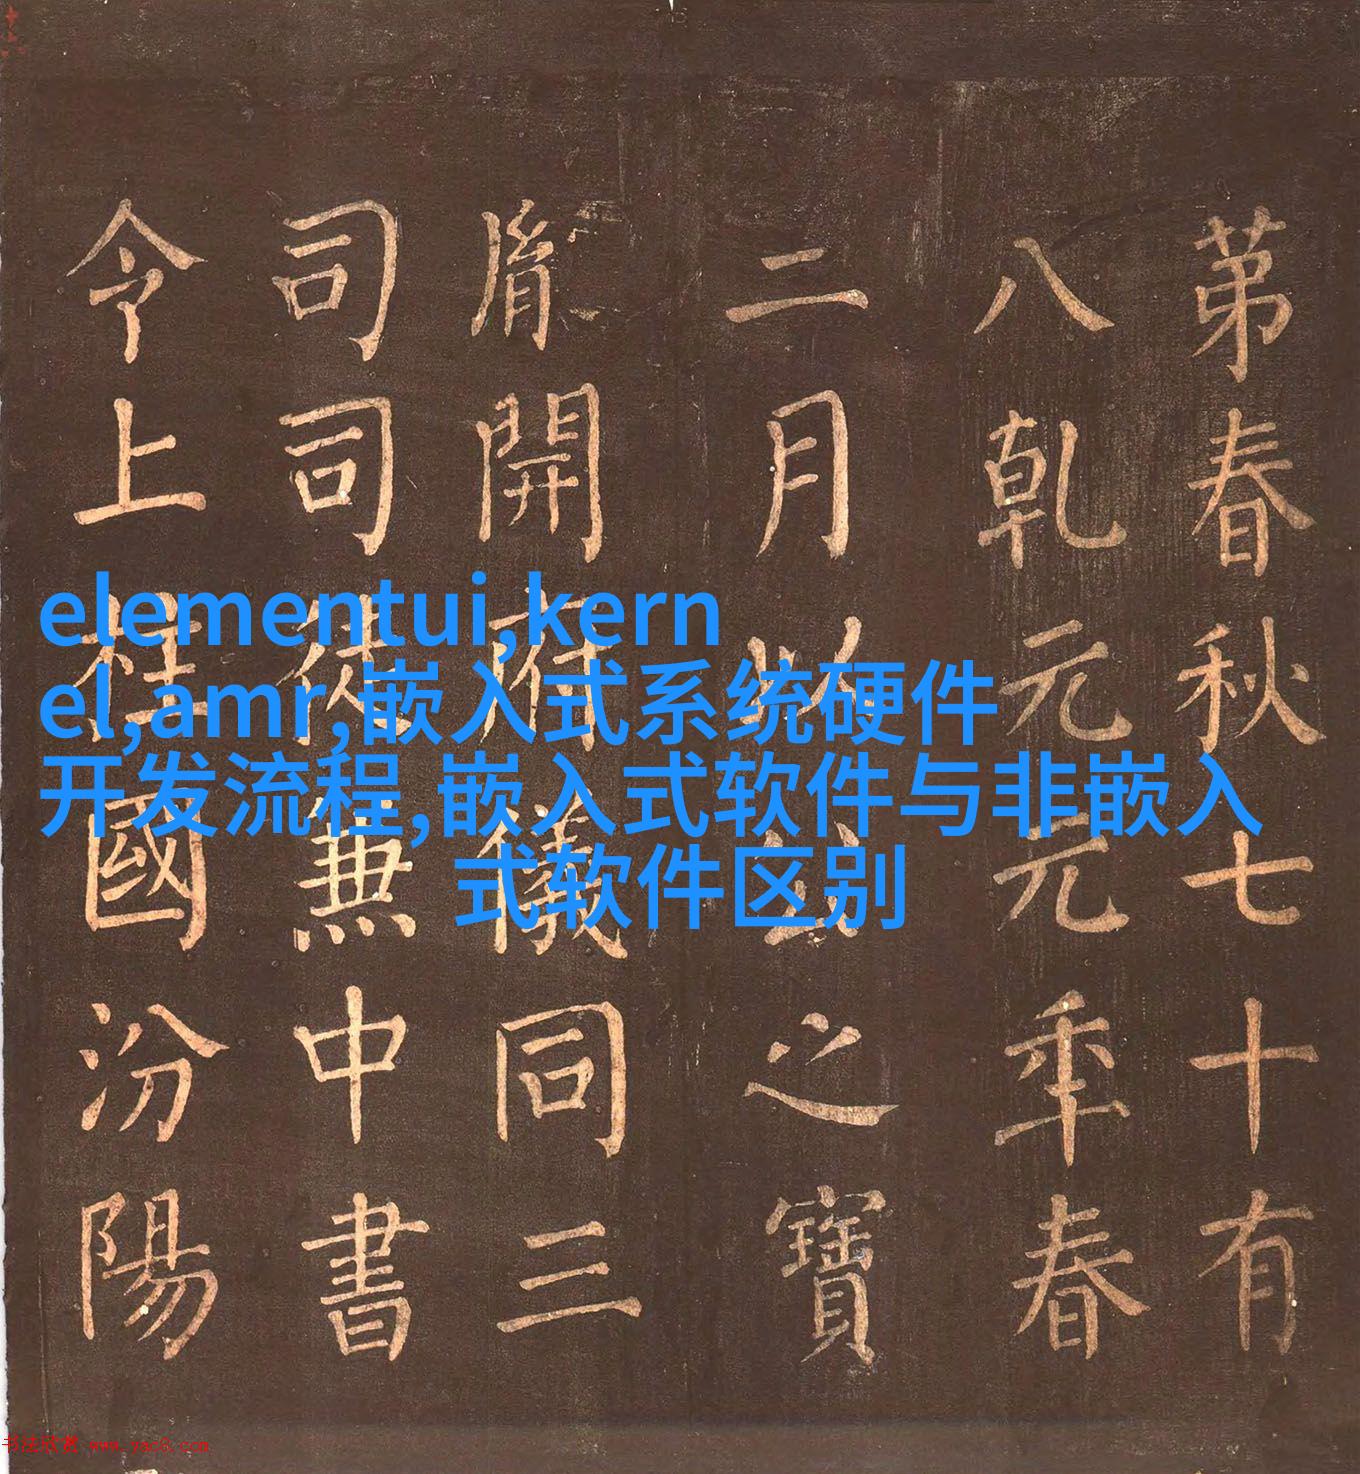 苐春秋七十有
八乾元元年春
二月以公之寶
胤開府儀同三
司司徒兼中書
令上柱國汾陽
elementui,kern
el,amr,嵌入式系统硬件
开发流程,嵌入式软件与非嵌入
式软件区别
书法欣赏 www.yac8.com